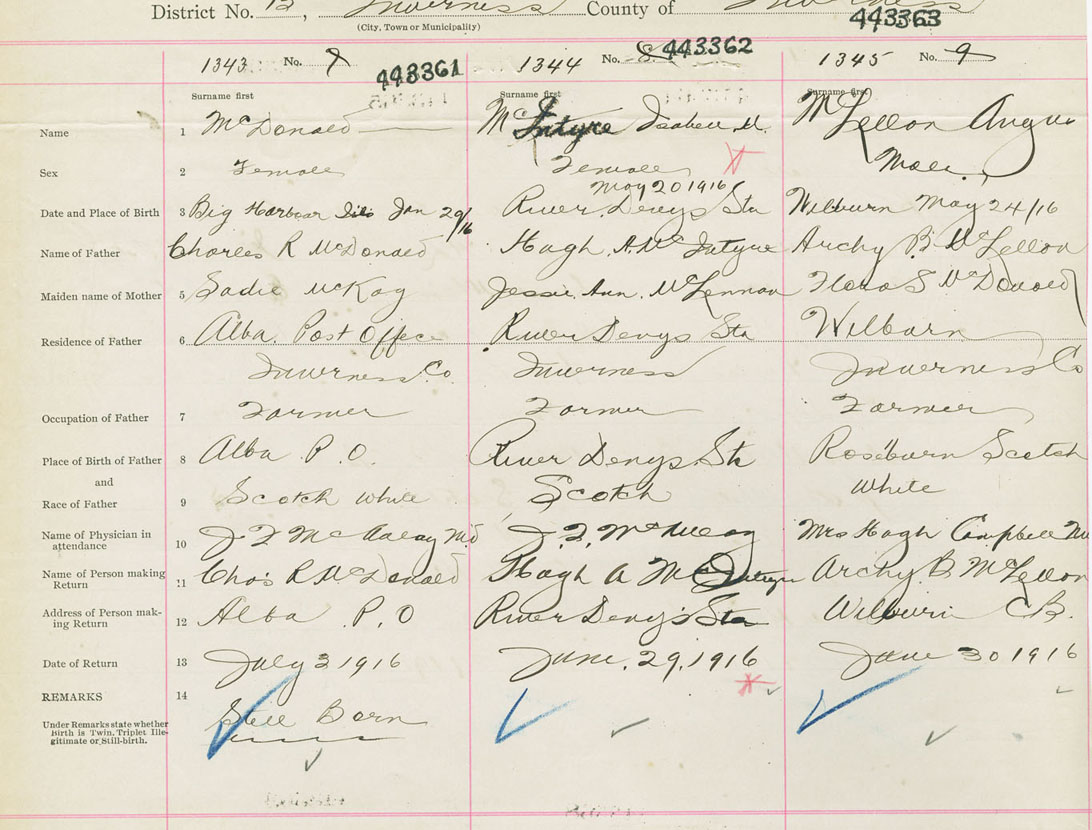 District No. 13, Inverness County of Inverness
(City, Town or Municipality)
443363
1343 No. 7 443361 1344 No. 8 443362 1345 No. 9
Surname first Surname first Surname first
Name 1 McDonald McIntyre Isabell M. McLellon Angus
Sex 2 Female Female Male
May 20 1916
Date and Place of Birth 3 Big Harbour Jan 29/16 River Denys Sta Wilburn May 24/16
Name of Father 4 Charles R McDonald Hugh A. McIntyre Archy B McLellon
Maiden name of Mother 5 Sadie McKay Jessie Ann McLennan Flora S McDonald
Residence of Father 6 Alba. Post Office River Denys Sta Wilburn
Inverness Co. Inverness Inverness Co
Occupation of Father 7 Farmer Farmer Farmer
Place of Birth of Father 8 Alba P.O. River Denys Sta Roseburn Scotch
and
Race of Father 9 Scotch White Scotch White
Name of Physician in
attendance 10 J. F. McAulay M.D J. F. McAulay Mrs Hugh Campbell
Name of Person making
Return 11 Chas R McDonald Hugh A McIntyre Archy B McLellon
Address of Person mak-
ing Return 12 Alba P.O River Deny's Sta Wilburn C B.
Date of Return 13 July 3 1916 June. 29, 1916 June 30 1916
REMARKS 14
Under Remarks state whether
Birth is Twin, Triplet Ille-
gitimate or Still-birth.
Still Born